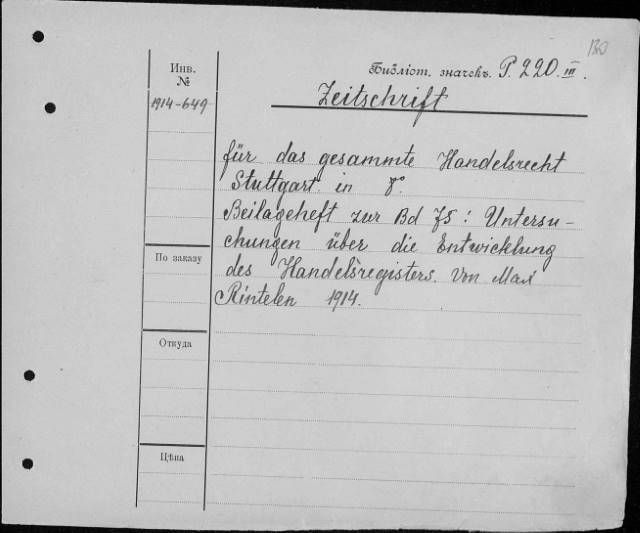 130
Библіот. значекъ. P. 220. III.
Инв.
№
1914-649
Zeitschrift
für das gesammte Handelsrecht
Stuttgart. in 8°.
Beilageheft zur Bd 75: Untersu-
chungen über die Entwicklung
des Handelsregisters. Von Max
Rintelen 1914.
По заказу
Откуда
Цѣна